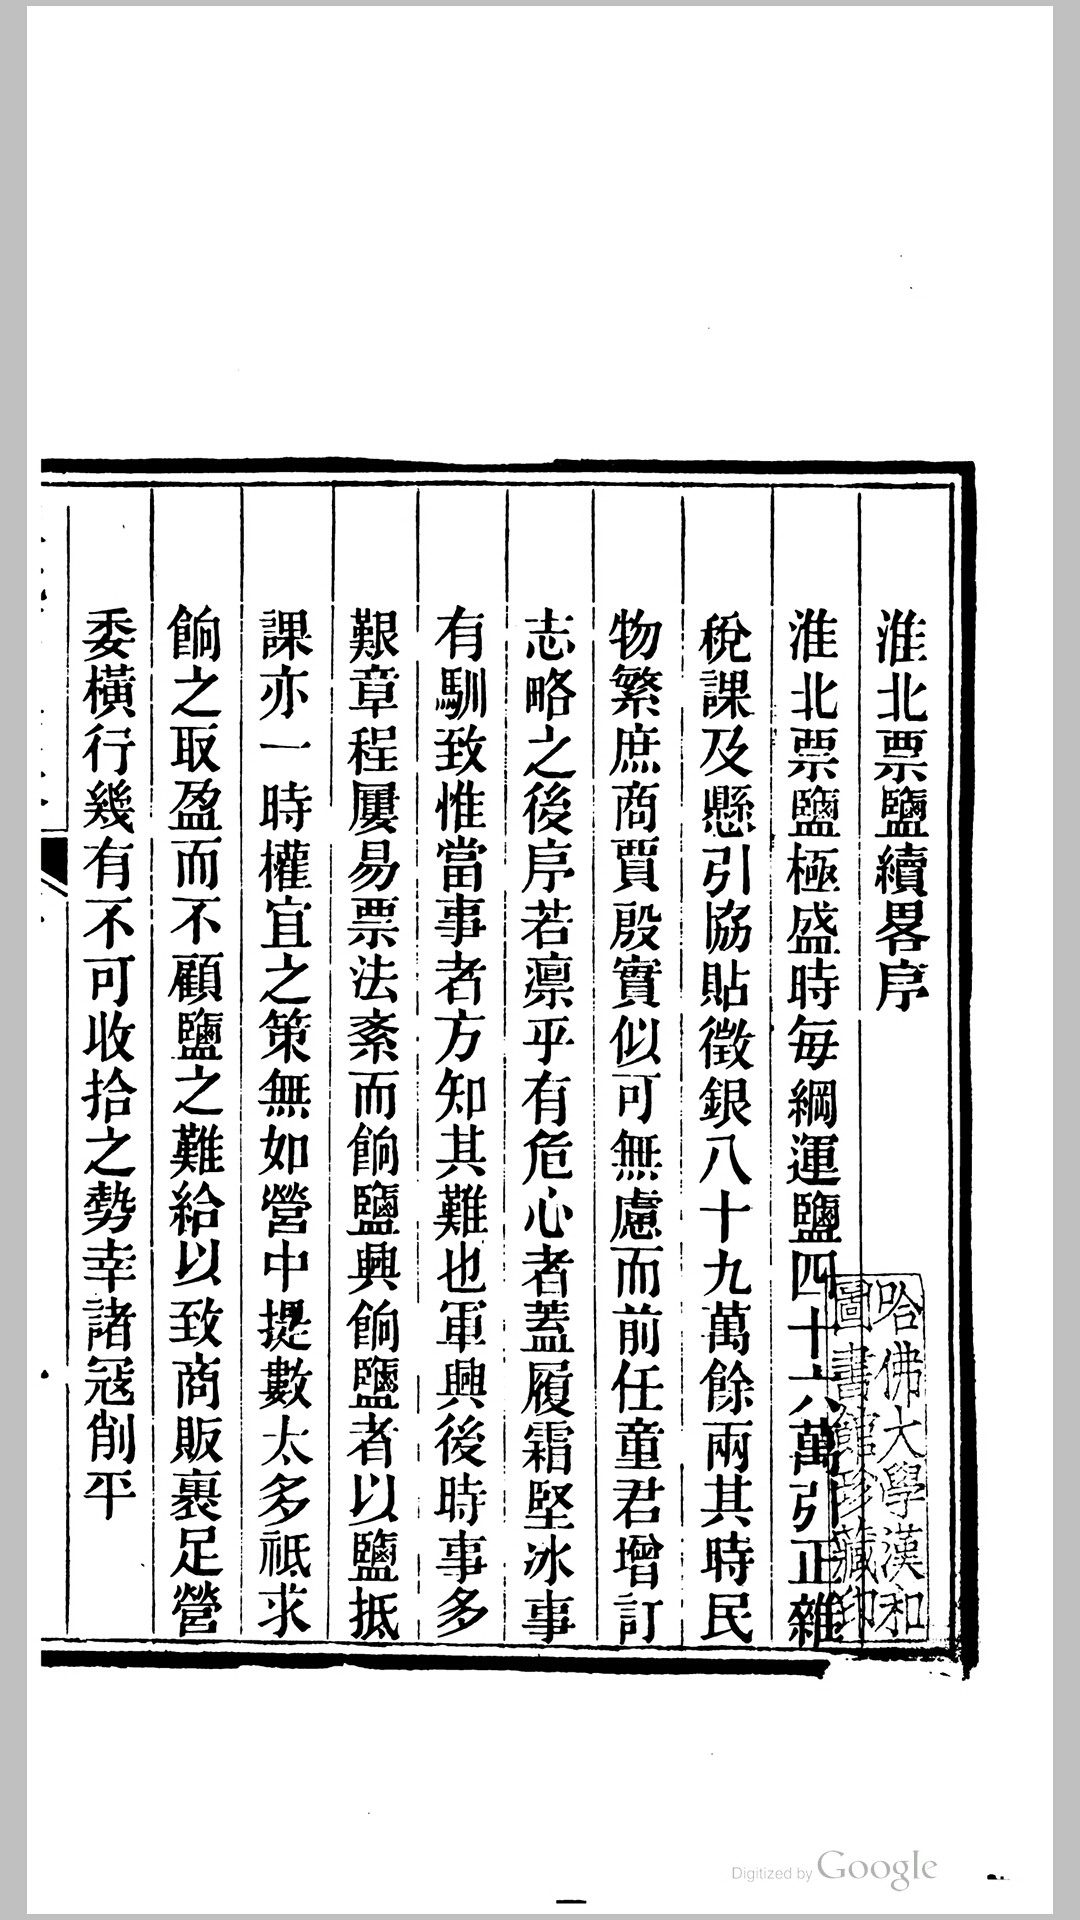 淮北票鹽續畧序
淮北票鹽極盛時每綱運鹽四十六萬引正雜
稅課及懸引協貼徵銀八十九萬餘兩其時民
物繁庶商賈殷實似可無慮而前任童君增訂
志略之後序若凛乎有危心者蓋履霜堅冰事
有馴致惟當事者方知其難也軍興後時事多
艱章程屢易票法紊而餉鹽興餉鹽者以鹽抵
課亦一時權宜之策無如營中提數太多祗求
餉之取盈而不顧鹽之難給以致商販裹足營
委橫行幾有不可收拾之勢幸諸冦削平
哈佛大學漢和
圖書館珍藏印
Digitized by Google